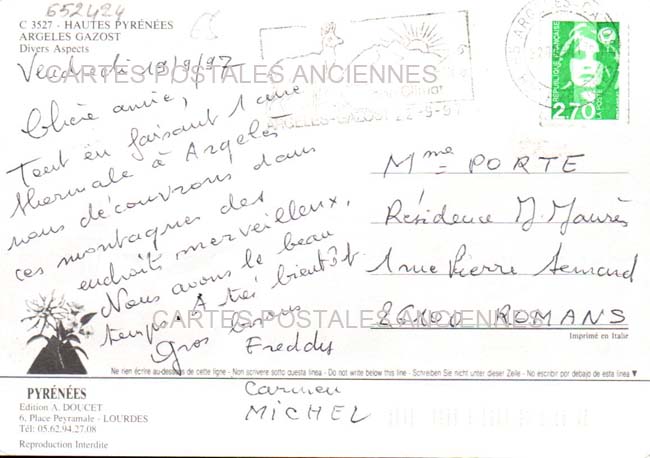 652424
C 3527 - HAUTES PYRÉNÉES
ARGELES GAZOST
Divers Aspects
Vendredi 19/9/97
CARTES POSTALES ANCIENNES
Chère amie,
Tout en faisant 1 cure
thermale à Argelès
nous découvrons dans
ces montagnes des
endroits merveilleux.
Nous avons le beau
temps. A très bientôt
Gros bisous
Freddy
Carmen
MICHEL
ARGELES-GAZOST 22-9-97
REPUBLIQUE FRANÇAISE
LA POSTE
2,70
Mme PORTE
Résidence J. Jaurès
1 rue Pierre Semard
26100 ROMANS
CARTES POSTALES ANCIENNES
Imprimé en Italie
Ne rien écrire au-dessous de cette ligne - Non scrivere sotto questa linea - Do not write below this line - Schreiben Sie nicht unter dieser Zeile - No escribir por debajo de esta linea ▼
PYRÉNÉES
Edition A. DOUCET
6, Place Peyramale - LOURDES
Tél: 05.62.94.27.08
Reproduction Interdite